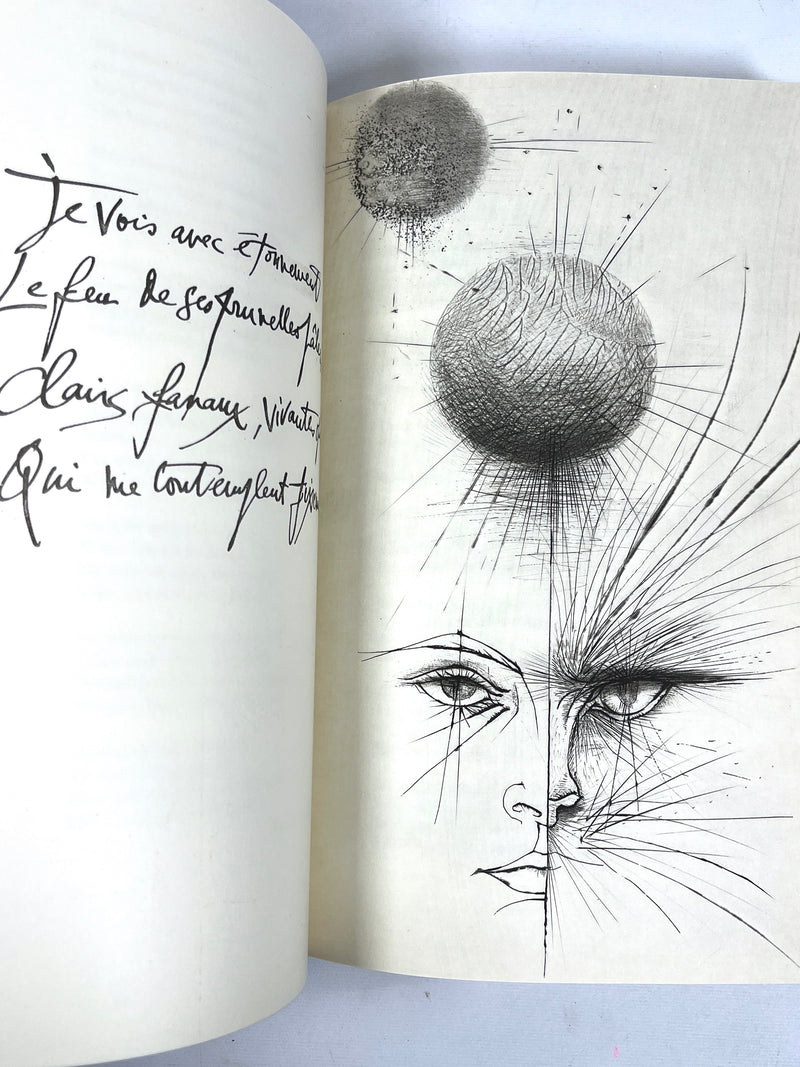 Je vois avec étonnement
Le feu de ses prunelles pâles
Clairs fanaux, vivantes
Qui me contemplent